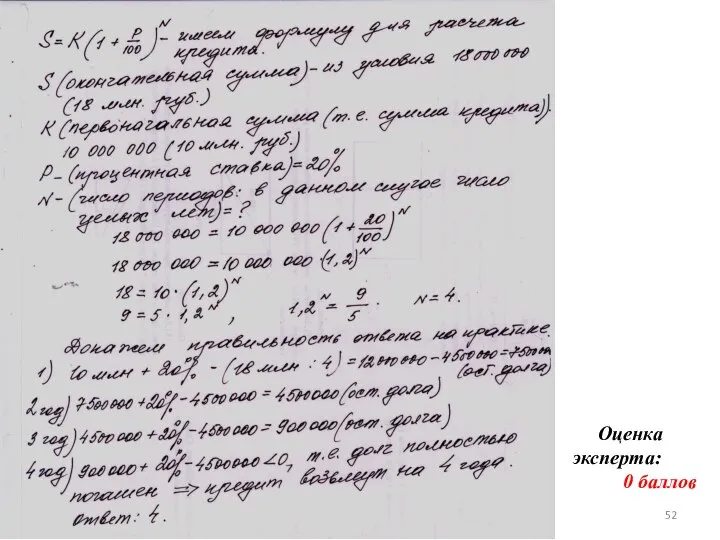 S = K (1 + P/100)^N – имеем формулу для расчета
кредита.
S (окончательная сумма) – из условия 18 000 000
(18 млн. руб.)
K (первоначальная сумма (т.е. сумма кредита)).
10 000 000 (10 млн. руб.)
P – (процентная ставка) = 20%
N – (число периодов: в данном случае число
целых лет) = ?
18 000 000 = 10 000 000 (1 + 20/100)^N
18 000 000 = 10 000 000 · (1,2)^N
18 = 10 · (1,2)^N
9 = 5 · 1,2^N , 1,2^N = 9/5 . N = 4.
Докажем правильность ответа на практике.
1) 10 млн + 20% - (18 млн : 4) = 12 000 000 – 4 500 000 = 7 500 000
(ост. долга)
2 год) 7 500 000 + 20% - 4 500 000 = 4 500 000 (ост. долга)
3 год) 4 500 000 + 20% - 4 500 000 = 900 000 (ост. долга)
4 год) 900 000 + 20% - 4 500 000 < 0, т.е. долг полностью
погашен ⇒ кредит возьмут на 4 года.
ответ: 4.
Оценка
эксперта:
0 баллов
52